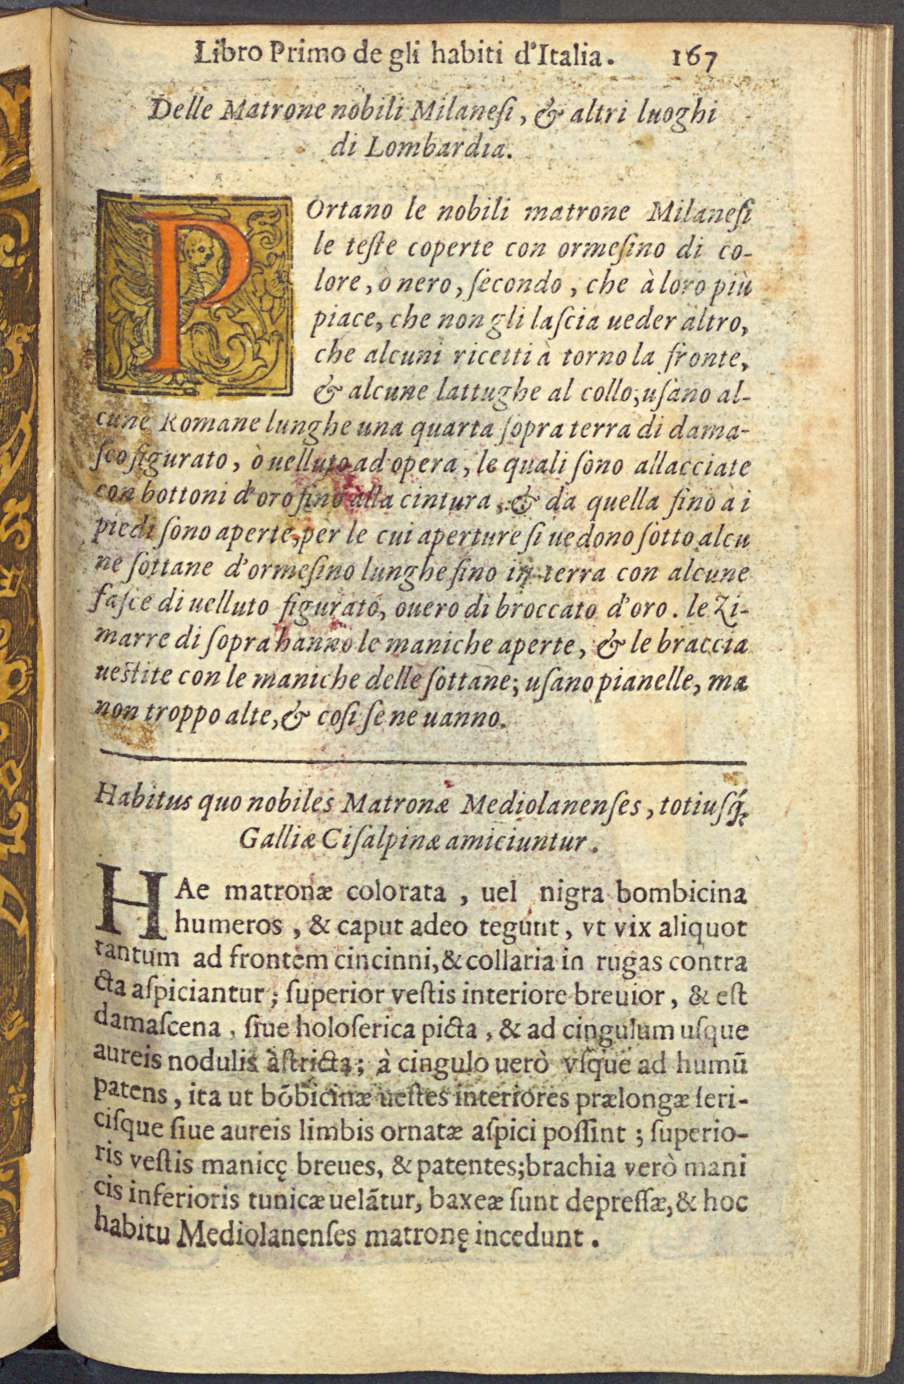 Libro Primo de gli habiti d'Italia. 167
Delle Matrone nobili Milanesi, & altri luoghi
di Lombardia.
POrtano le nobili matrone Milanesi
le teſte coperte con ormeſino di co-
lore, o nero, ſecondo, che à loro più
piace, che non gli laſcia ueder altro,
che alcuni ricetti à torno la fronte,
& alcune lattughe al collo; uſano al-
cune Romane lunghe una quarta ſopra terra di dama-
ſco figurato, ò uelluto ad opera, le quali ſono allacciate
con bottoni d'oro ſino alla cintura, & da quella ſino à i
piedi ſono aperte, per le cui aperture ſi uedono ſotto alcu
ne ſottane d'ormeſino lunghe ſino in terra con alcune
faſcie di uelluto figurato, ouero di broccato d'oro. le Zi-
marre di ſopra hanno le maniche aperte, & le braccia
ueſtite con le maniche delle ſottane; uſano pianelle, ma
non troppo alte, & coſi ſe ne uanno.
Habitus quo nobiles Matronæ Mediolanenſes, totiuſq́;
Galliæ Ciſalpinæ amiciuntur.
HAe matronæ colorata, uel nigra bombicina
humeros, & caput adeo tegunt, vt vix aliquot
tantum ad frontem cincinni, & collaria in rugas contra
cta aſpiciantur; ſuperior veſtis interiore breuior, & eſt
damaſcena, ſiue holoſerica picta, & ad cingulum uſque
aureis nodulis aſtricta; à cingulo uerò vſque ad humū
patens, ita ut bōbicinæ ueſtes interiores prælongæ ſeri-
ciſque ſiue aureis limbis ornatæ aſpici poſſint; ſuperio-
ris veſtis manicę breues, & patentes; brachia verò mani
cis inferioris tunicæ uelātur, baxeæ ſunt depreſſæ, & hoc
habitu Mediolanenſes matronę incedunt.